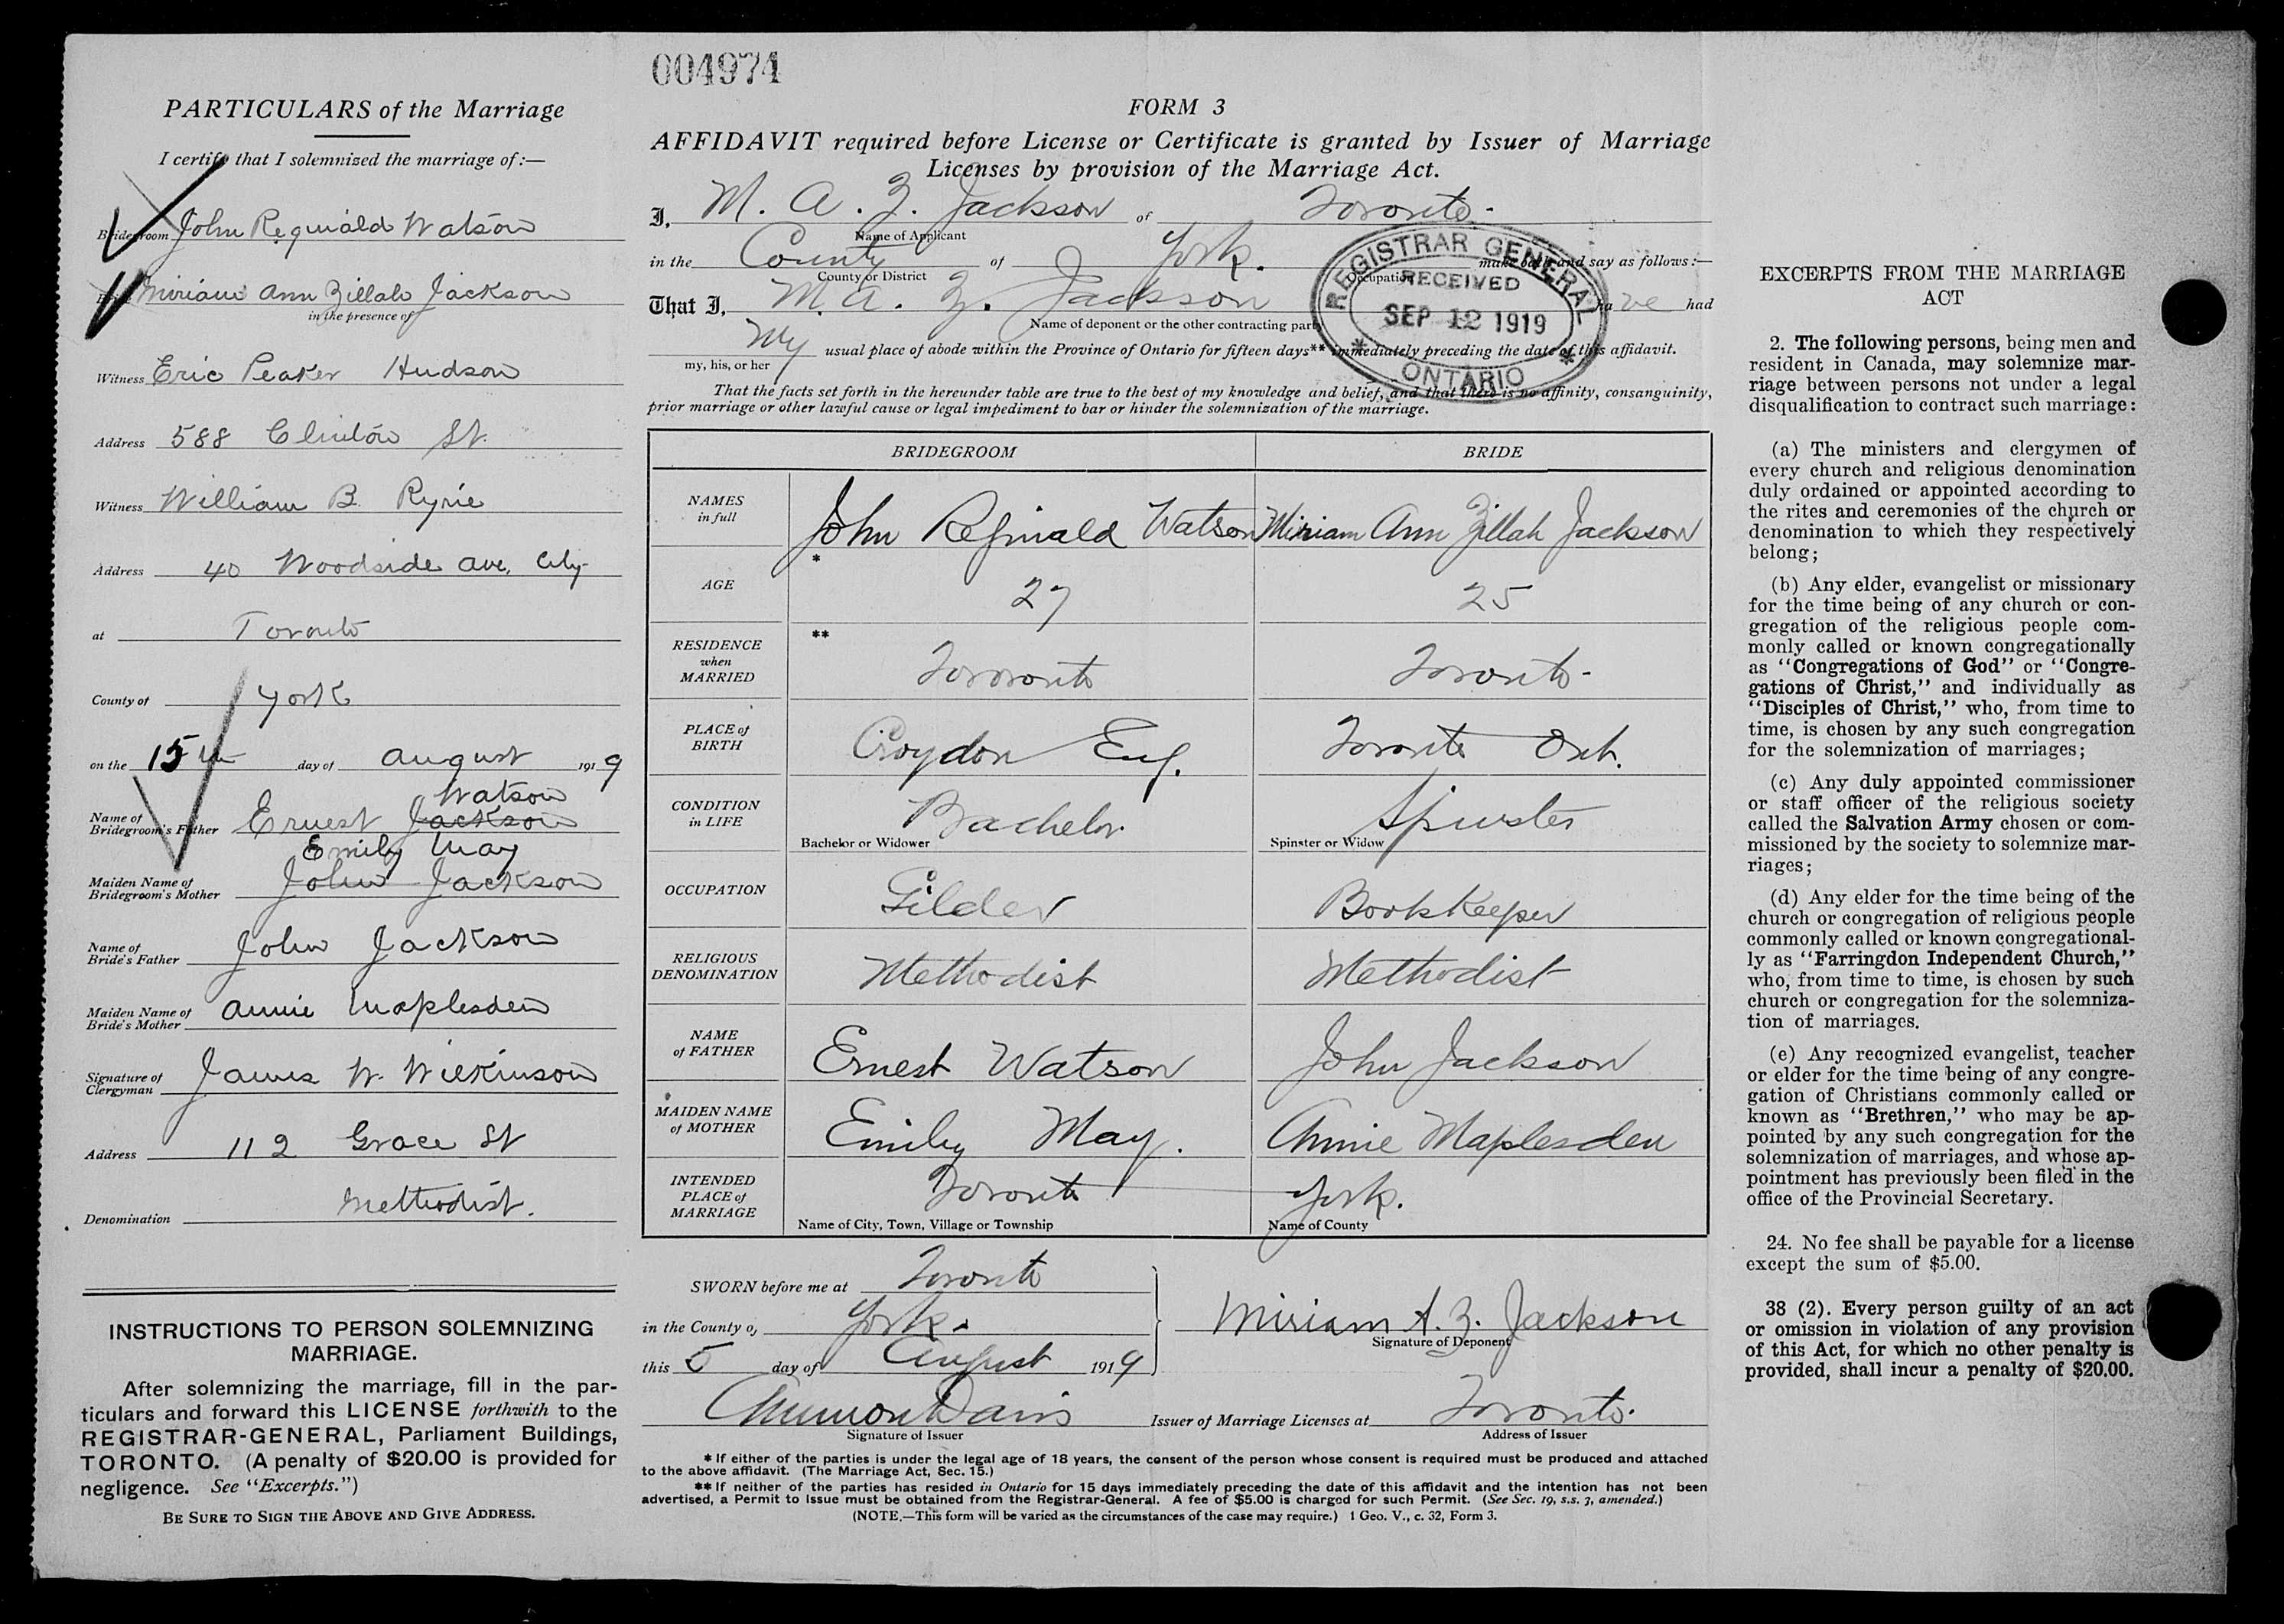 004974
PARTICULARS of the Marriage
I certify that I solemnized the marriage of:—
Bridegroom John Reginald Watson
Miriam Ann Zillah Jackson
in the presence of
Witness Eric Peaker Hudson
Address 588 Clinton St.
Witness William B. Ryrie
Address 40 Woodside Ave, City
at Toronto
County of York
on the 15th day of August 1919
Watson
Name of Bridegroom's Father Ernest Jackson
Emily May
Maiden Name of Bridegroom's Mother John Jackson
Name of Bride's Father John Jackson
Maiden Name of Bride's Mother Annie Maplesden
Signature of Clergyman James W. Wilkinson
Address 112 Grace St
Denomination Methodist.
INSTRUCTIONS TO PERSON SOLEMNIZING
MARRIAGE.
After solemnizing the marriage, fill in the par-
ticulars and forward this LICENSE forthwith to the
REGISTRAR-GENERAL, Parliament Buildings,
TORONTO. (A penalty of $20.00 is provided for
negligence. See "Excerpts.")
BE SURE TO SIGN THE ABOVE AND GIVE ADDRESS.
FORM 3
AFFIDAVIT required before License or Certificate is granted by Issuer of Marriage
Licenses by provision of the Marriage Act.
I, M. A. Z. Jackson of Toronto.
Name of Applicant
in the County of York. make oath and say as follows:—
County or District Occupation
That I, M. A. Z. Jackson ha ve had
Name of deponent or the other contracting party
My usual place of abode within the Province of Ontario for fifteen days** immediately preceding the date of this affidavit.
my, his, or her
REGISTRAR GENERAL
RECEIVED
SEP 12 1919
* ONTARIO *
That the facts set forth in the hereunder table are true to the best of my knowledge and belief, and that there is no affinity, consanguinity,
prior marriage or other lawful cause or legal impediment to bar or hinder the solemnization of the marriage.
BRIDEGROOM BRIDE
NAMES in full John Reginald Watson Miriam Ann Zillah Jackson
AGE * 27 25
RESIDENCE when MARRIED ** Tororonto Toronto-
PLACE of BIRTH Croydon Eng. Toronto Ont.
CONDITION in LIFE Bachelor Spinster
Bachelor or Widower Spinster or Widow
OCCUPATION Gilder Bookkeeper
RELIGIOUS DENOMINATION Methodist Methodist
NAME of FATHER Ernest Watson John Jackson
MAIDEN NAME of MOTHER Emily May. Annie Maplesden
INTENDED PLACE of MARRIAGE Toronto York.
Name of City, Town, Village or Township Name of County
SWORN before me at Toronto
in the County of York.
Miriam A. Z. Jackson
Signature of Deponent
this 5 day of August 1919
Issuer of Marriage Licenses at Toronto.
Signature of Issuer Address of Issuer
* If either of the parties is under the legal age of 18 years, the consent of the person whose consent is required must be produced and attached
to the above affidavit. (The Marriage Act, Sec. 15.)
** If neither of the parties has resided in Ontario for 15 days immediately preceding the date of this affidavit and the intention has not been
advertised, a Permit to Issue must be obtained from the Registrar-General. A fee of $5.00 is charged for such Permit. (See Sec. 19, s.s. 3, amended.)
(NOTE.—This form will be varied as the circumstances of the case may require.) 1 Geo. V., c. 32, Form 3.
EXCERPTS FROM THE MARRIAGE
ACT
2. The following persons, being men and
resident in Canada, may solemnize mar-
riage between persons not under a legal
disqualification to contract such marriage:
(a) The ministers and clergymen of
every church and religious denomination
duly ordained or appointed according to
the rites and ceremonies of the church or
denomination to which they respectively
belong;
(b) Any elder, evangelist or missionary
for the time being of any church or con-
gregation of the religious people com-
monly called or known congregationally
as "Congregations of God" or "Congre-
gations of Christ," and individually as
"Disciples of Christ," who, from time to
time, is chosen by any such congregation
for the solemnization of marriages;
(c) Any duly appointed commissioner
or staff officer of the religious society
called the Salvation Army chosen or com-
missioned by the society to solemnize mar-
riages;
(d) Any elder for the time being of the
church or congregation of religious people
commonly called or known congregational-
ly as "Farringdon Independent Church,"
who, from time to time, is chosen by such
church or congregation for the solemniza-
tion of marriages.
(e) Any recognized evangelist, teacher
or elder for the time being of any congre-
gation of Christians commonly called or
known as "Brethren," who may be ap-
pointed by any such congregation for the
solemnization of marriages, and whose ap-
pointment has previously been filed in the
office of the Provincial Secretary.
24. No fee shall be payable for a license
except the sum of $5.00.
38 (2). Every person guilty of an act
or omission in violation of any provision
of this Act, for which no other penalty is
provided, shall incur a penalty of $20.00.